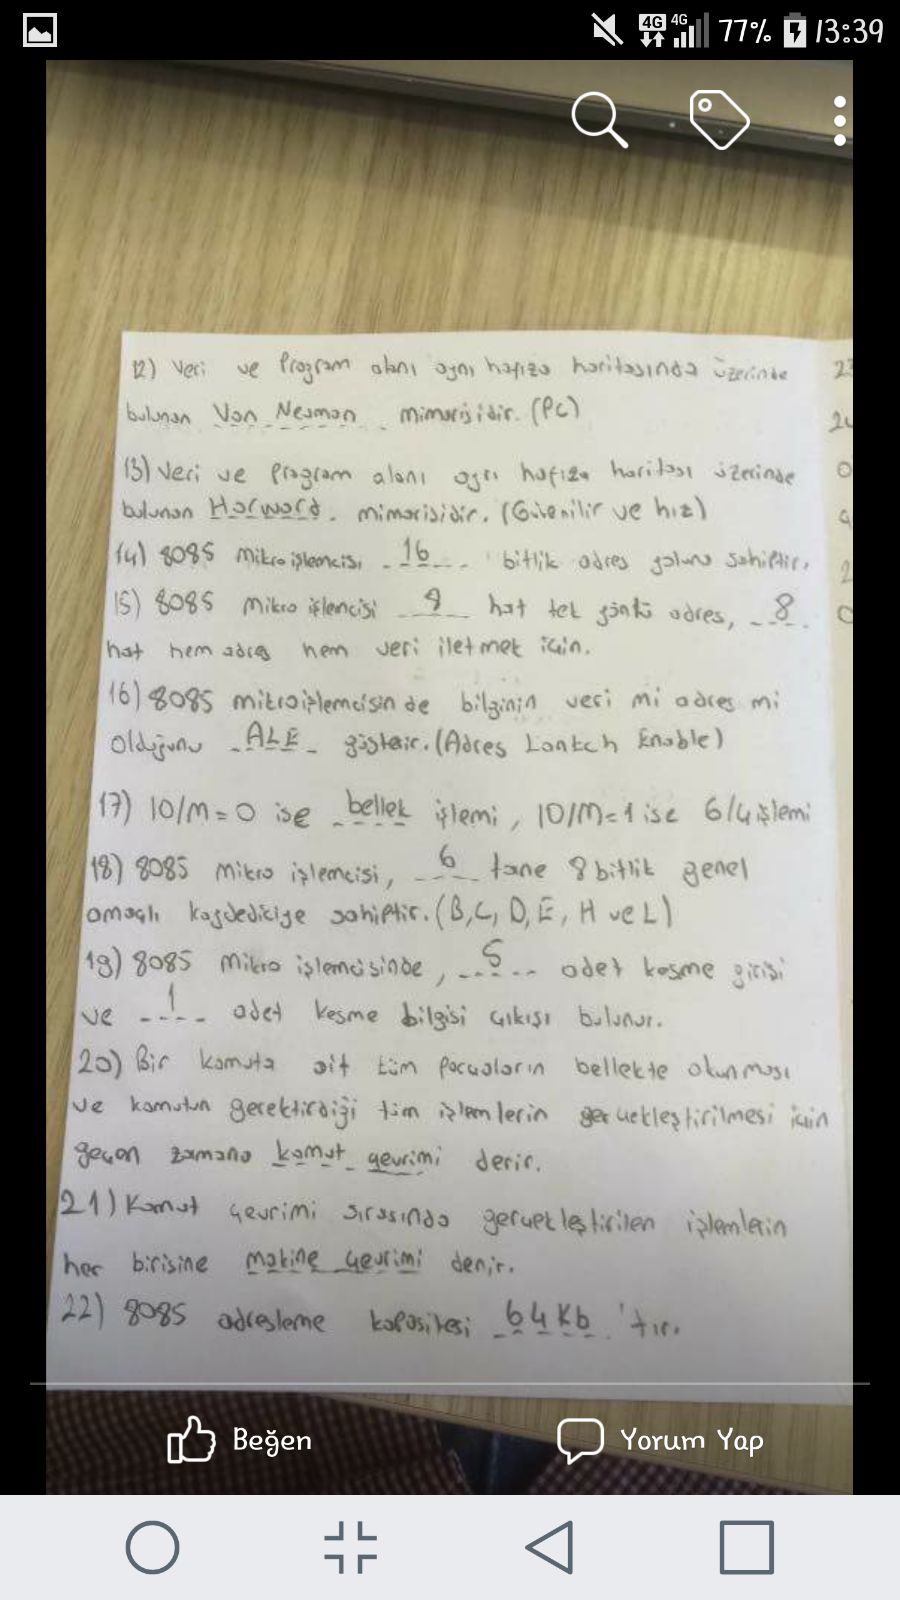 4G 4G 77% 13:39
12) Veri ve Program alanı aynı hafıza haritasında üzerinde
bulunan Von Neuman mimarisidir. (PC)
13) Veri ve Program alanı ayrı hafıza haritası üzerinde
bulunan Harward. mimarisidir. (Güvenilir ve hız)
14) 8085 mikroişlemcisi 16 bitlik adres yoluna sahiptir.
15) 8085 mikro işlemcisi 8 hat tek yönlü adres, 8
hat hem adres hem veri iletmek için.
16) 8085 mikroişlemcisinde bilginin veri mi adres mi
olduğunu ALE gösterir. (Adres Lantch Enable)
17) IO/M=0 ise bellek işlemi, IO/M=1 ise G/Ç işlemi
18) 8085 mikro işlemcisi, 6 tane 8 bitlik genel
amaçlı kaydediciye sahiptir. (B, C, D, E, H ve L)
19) 8085 mikro işlemcisinde, 5 adet kesme girişi
ve 1 adet kesme bilgisi çıkışı bulunur.
20) Bir komuta ait tüm parçaların bellekte okunması
ve komutun gerektirdiği tüm işlemlerin gerçekleştirilmesi için
geçen zamana komut çevrimi denir.
21) Komut çevrimi sırasında gerçekleştirilen işlemlerin
her birisine makine çevrimi denir.
22) 8085 adresleme kapasitesi 64 Kb 'tır.
Beğen Yorum Yap